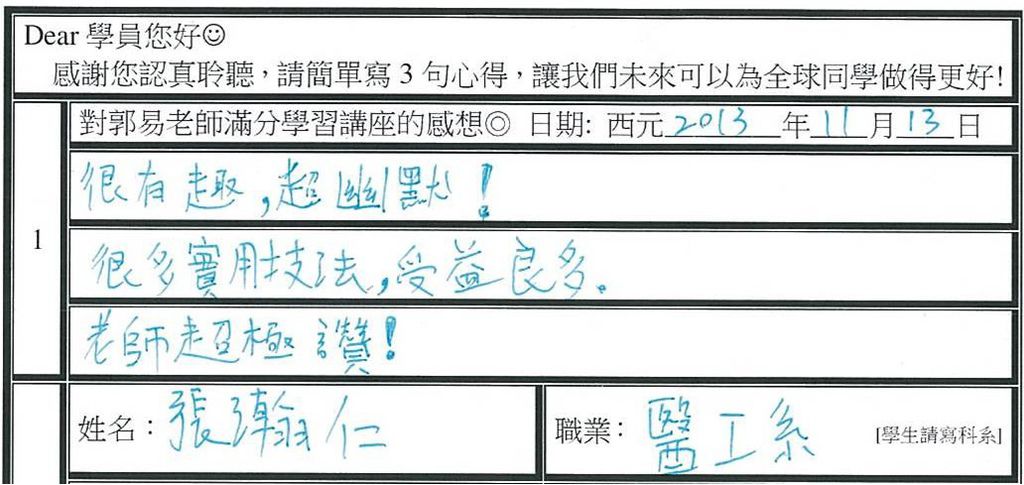 Dear 學員您好☺
感謝您認真聆聽，請簡單寫 3 句心得，讓我們未來可以為全球同學做得更好!
對郭易老師滿分學習講座的感想◎ 日期: 西元 2013 年 11 月 13 日
很有趣,超幽默!
1
很多實用技法,受益良多。
老師超極讚!
姓名：張瀚仁
職業：醫工系 [學生請寫科系]